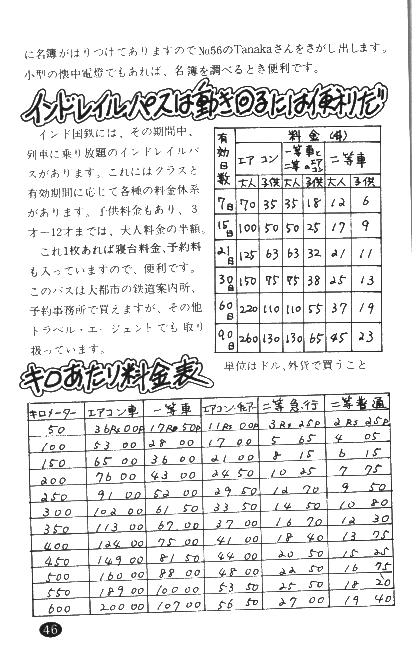 に名簿がはりつけてありますのでNo56のTanakaさんをさがし出します。
小型の懐中電燈でもあれば、名簿を調べるとき便利です。
インドレイルパスは動き回るには便利だ
インド国鉄には、その期間中、
列車に乗り放題のインドレイルパ
スがあります。これにはクラスと
有効期間に応じて各種の料金体系
があります。子供料金もあり、3
才ー12才までは、大人料金の半額。
これ1枚あれば寝台料金、予約料
も入っていますので、便利です。
このパスは大都市の鉄道案内所、
予約事務所で買えますが、その他
トラベル・エージェントでも取り
扱っています。
有効日数 料金
エアコン 一等車と二等のエアコン 二等車
大人 子供 大人 子供 大人 子供
7日 70 35 35 18 12 6
15日 100 50 50 25 17 9
21日 125 63 63 32 21 11
30日 150 75 75 38 25 13
60日 220 110 110 55 37 19
90日 260 130 130 65 45 23
単位はドル、外貨で買うこと
キロあたり料金表
キロメーター エアコン車 一等車 エアコン・チェアー 二等急行 二等普通
50 36Rs 00P 17Rs 50P 11Rs 00P 3Rs 25P 2Rs 25P
100 53 00 28 00 17 00 5 65 4 05
150 65 00 36 00 21 00 8 15 6 15
200 76 00 43 00 24 50 10 25 7 75
250 91 00 52 00 29 50 12 70 9 50
300 102 00 61 50 33 50 14 50 10 80
350 113 00 67 00 37 00 16 70 12 30
400 124 00 75 00 41 00 18 40 13 75
450 149 00 81 50 44 00 20 50 15 25
500 160 00 88 00 48 00 22 50 16 75
550 189 00 100 00 53 50 25 50 18 20
600 200 00 107 00 56 50 27 00 19 40
46